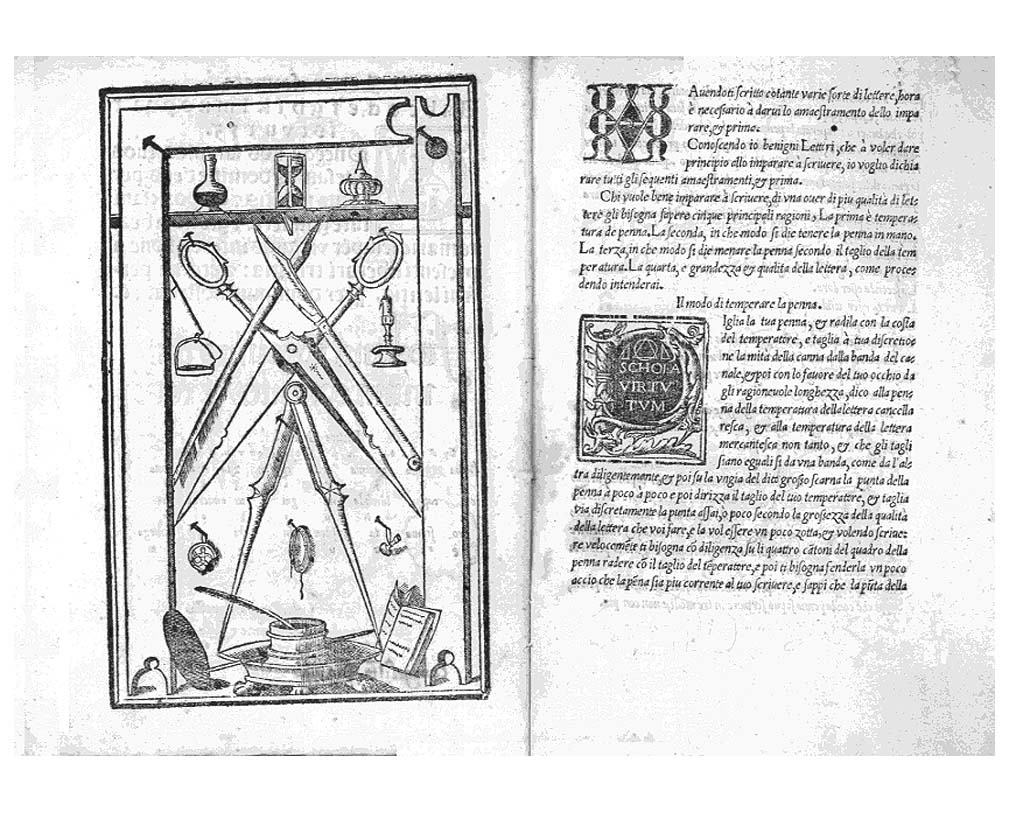 HAuendoti scritto cotante varie sorte di lettere, hora
è necessario à darui lo amaestramento dello impa
rare, & prima.
Conoscendo io benigni Lettori, che à voler dare
principio allo imparare à scriuere, io voglio dichia
rare tutti gli sequenti amaestramenti, & prima.
Chi vuole bene imparare à scriuere, di vna ouer di piu qualità di let=
tere gli bisogna sapere cinque principali ragioni. La prima è tempera=
tura de penna. La seconda, in che modo si die tenere la penna in mano.
La terza, in che modo si die menare la penna secondo il taglio della tem
peratura. La quarta, e grandezza & qualita della lettera, come proce=
dendo intenderai.
Il modo di temperare la penna.
SCHOLA
VIRTV
TVM
Iglia la tua penna, & radila con la costa
del temperatore, e taglia à tua discretio=
ne la mità della canna dalla banda del ca=
nale, & poi con lo fauore del tuo occhio da
gli ragioneuole longhezza, dico alla pen=
na della temperatura della lettera cancella
resca, & alla temperatura della lettera
mercantesca non tanto, & che gli tagli
siano eguali si da vna banda, come da l'al=
tra diligentemente, & poi su la vngia del dito grosso scarna la punta della
penna à poco à poco e poi dirizza il taglio del tuo temperatore, & taglia
via discretamente la punta assai, o poco secondo la grossezza della qualità
della lettera che voi fare, e la vol essere vn poco zotta, & volendo scriue=
re velocemẽte ti bisogna cõ diligenza su li quattro cãtoni del quadro della
penna radere cõ il taglio del tẽperatore, e poi ti bisogna fenderla vn poco
accio che la pẽna sia piu corrente al tuo scriuere, e sappi che la pũta della